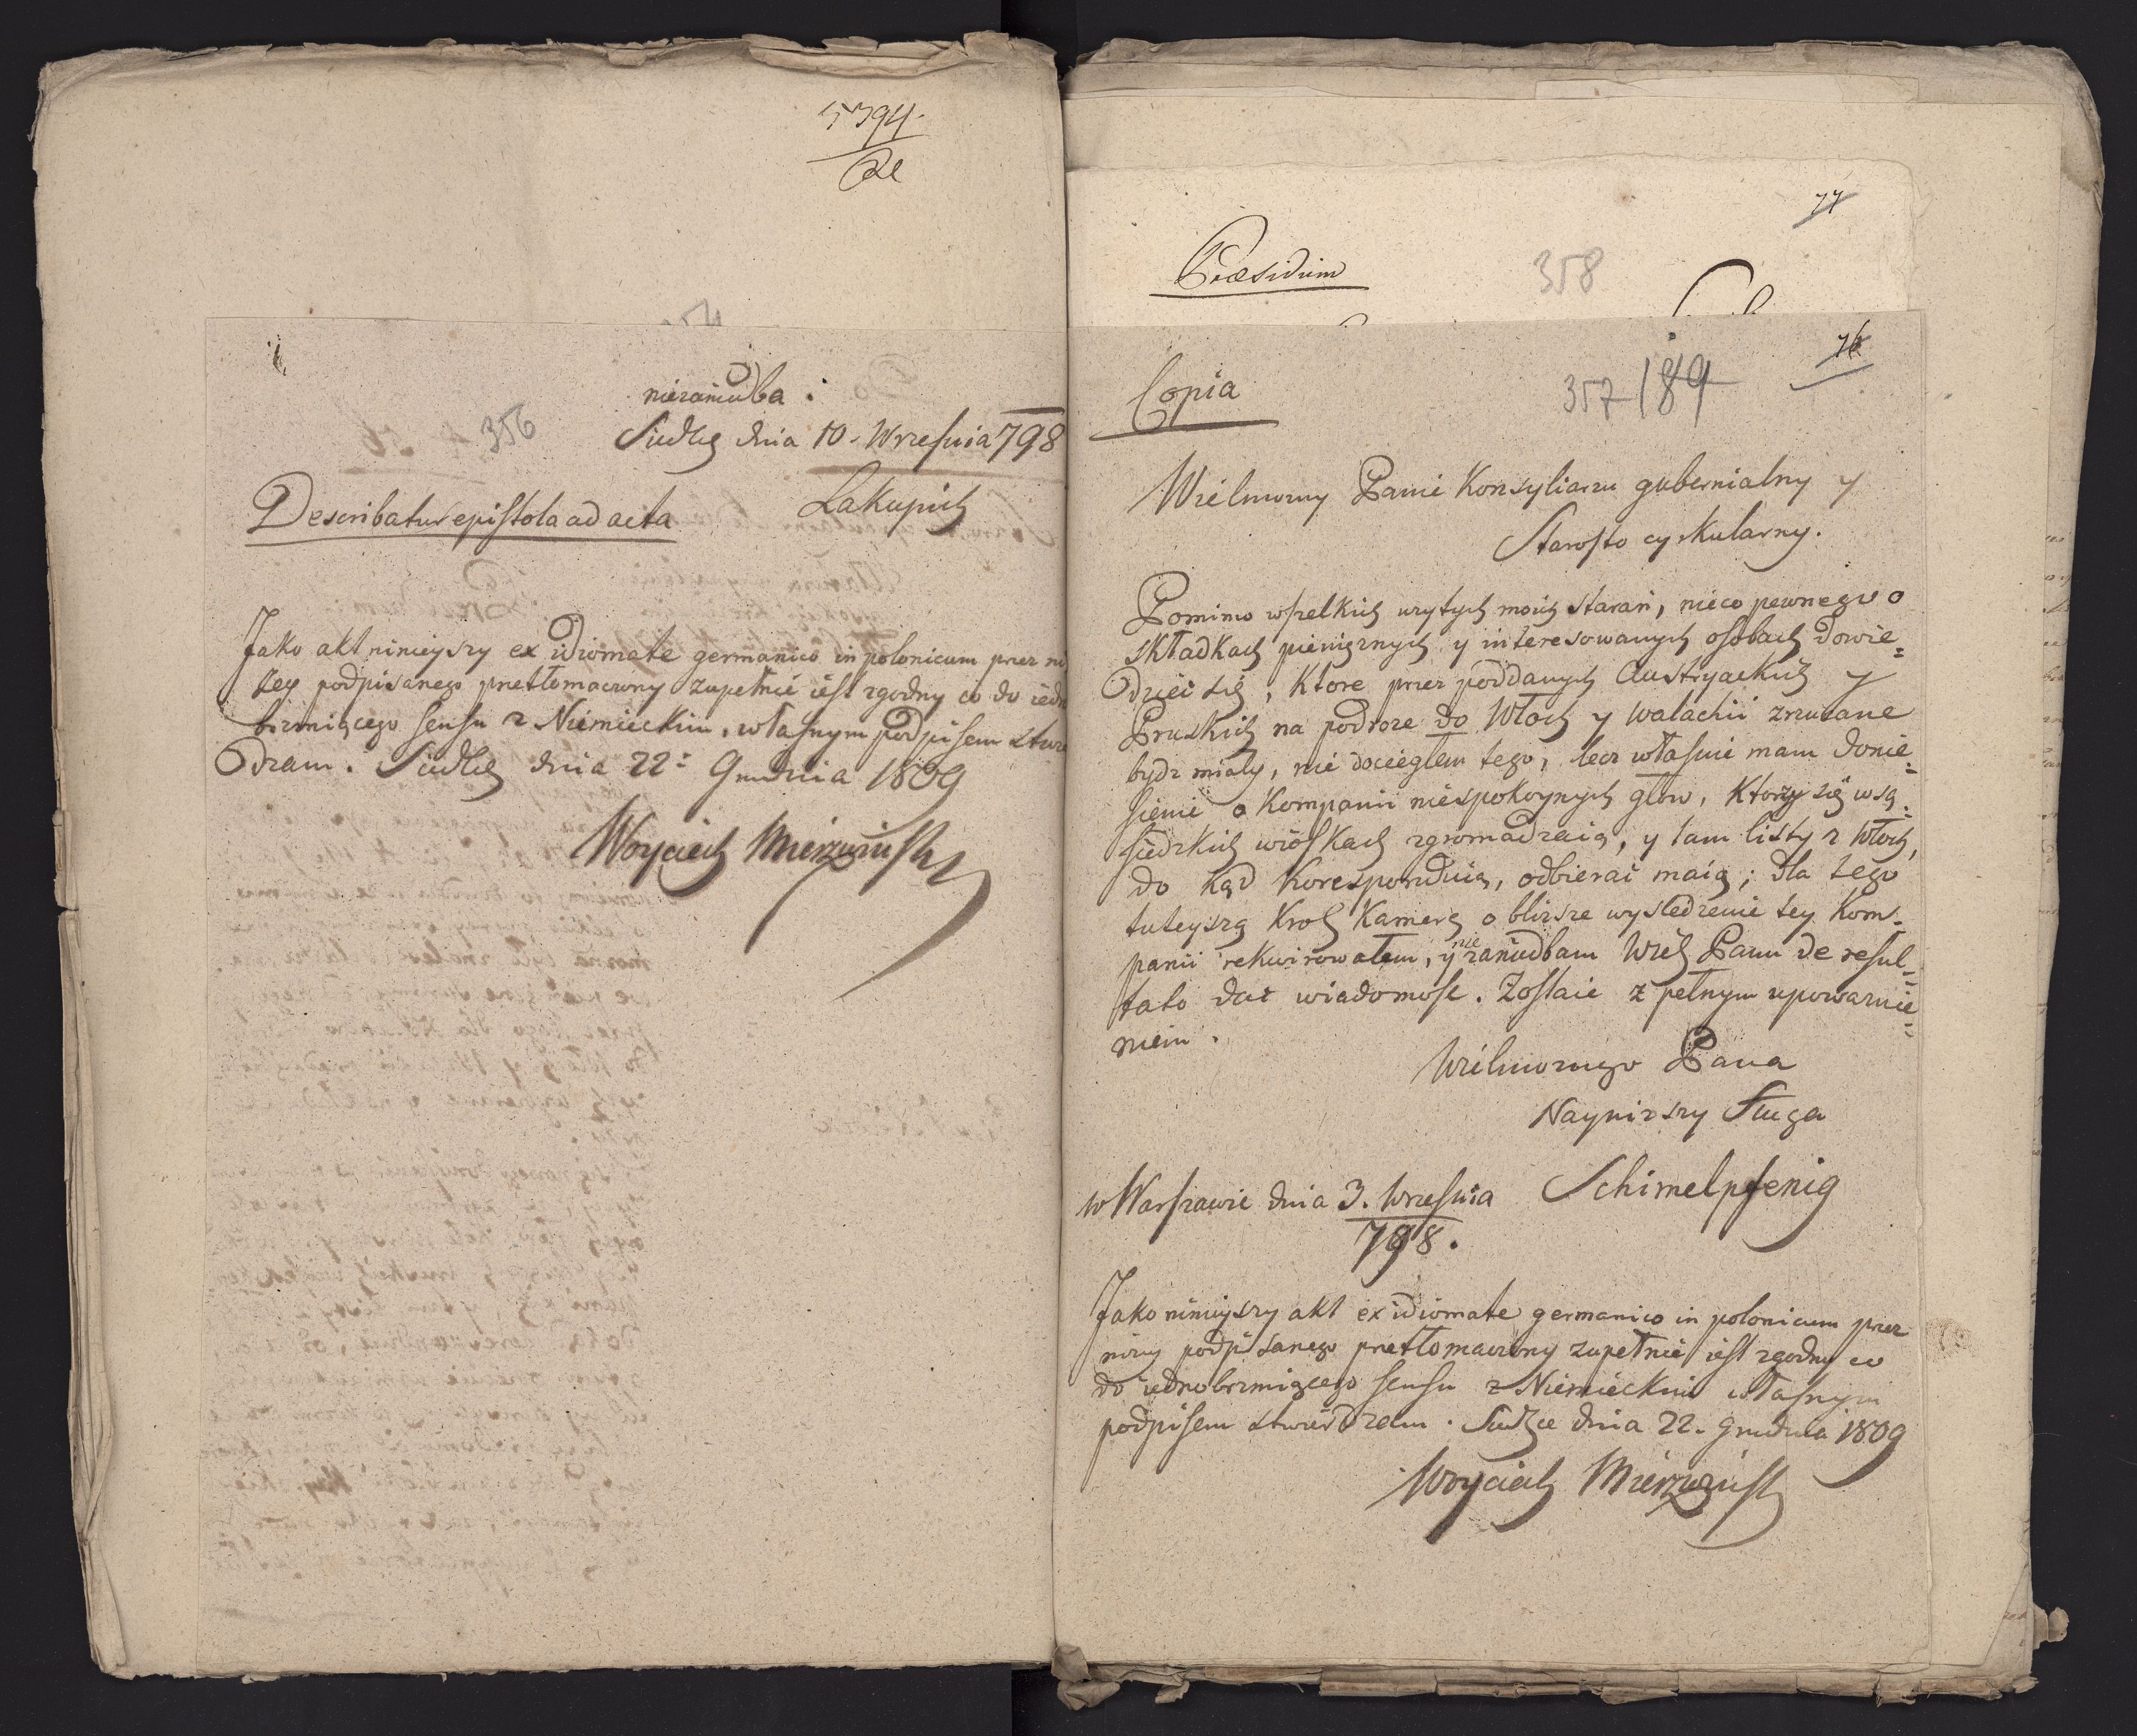 5394
De
356
niezaniedba :
Siedlce dnia 10. Wrzesnia 798
Lakupich
Describatur epistola ad acta
Jako akt ninieyszy ex idiomate germanico in polonicum przez ni
zey podpisanego przetłomaczony zupełnie iest zgodny co do iedno
brzmiącego sensu z Niemieckim, własnym podpisem stwier
dzam. Siedlce dnia 22. Grudnia 1809
Woyciech Mierzwinski
77
Præsidium
358
76
357 189
Copia
Wielmozny Panie Konsyliarzu gubernialny y
Starosto cyrkularny.
Pomimo wszelkich uzytych moich staran, nieco pewnego o
składkach pieniężnych y interesowanych osobach dowie=
dzieć się, ktore przez poddanych Austryackich y
Pruskich na podroze do Włoch y Walachii zrzucane
bydz miały, nie docieglem tego, lecz własnie mam donie=
sienie o kompanii niespokoynych głow, ktorzy się w są=
siedzkich wioskach zgromadzaią, y tam listy z Włoch,
do kąd koresponduią, odbierać maią; dla tego
tuteyszą Krol Kamerę o blizsze wysledzenie tey kom=
panii rekwirowałem, y nie zaniedbam Wiel Panu de resul=
tato dać wiadomosc. Zostaie z pełnym upowaznie=
niem.
Wielmoznego Pana
Naynizszy Sługa
Schimelpfenig
w Warszawie dnia 3. Wrzesnia
798.
Jako ninieyszy akt ex idiomate germanico in polonicum przez
nizey podpisanego przetłomaczony zupełnie iest zgodny co
do iednobrzmiącego sensu z Niemieckim własnym
podpisem stwierdzam. Siedlce dnia 22. Grudnia 1809
Woyciech Mierzwinski